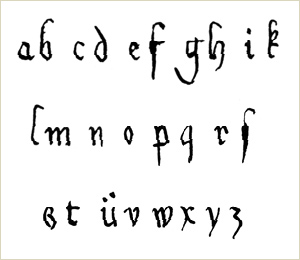 a b c d e f g h i k
l m n o p q r ſ
s t ü v w x y z